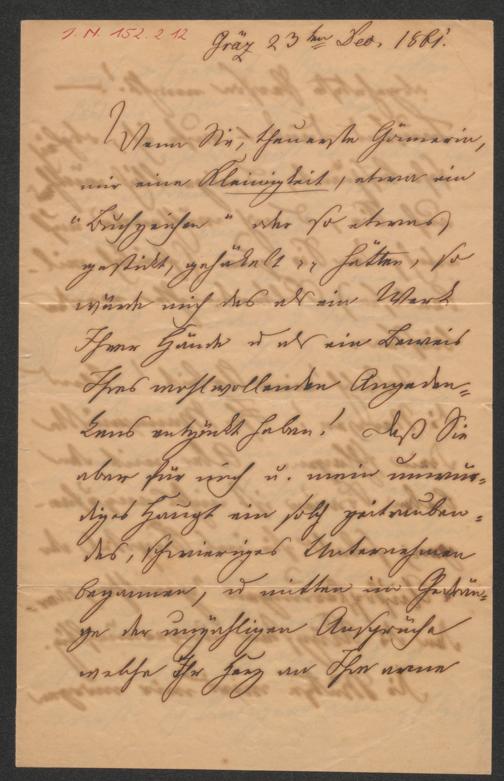 I. N. 152.212
Gräz 23ten Dec. 1861.
Wenn Sie, theuerste Gönnerin,
mir eine Kleinigkeit, etwa ein
"Buchzeichen" oder so etwas,
gestickt, gehäkelt hätten, so
würde mich das als ein Werk
Ihrer Hände u als ein Beweis
Ihres wohlwollenden Angeden=
kens entzückt haben! Daß Sie
aber für mich u. mein unwür=
diges Haupt ein solch zeitrauben=
des, schwieriges Unternehmen
begannen, u mitten im Gedrän=
ge der unzähligen Ansprüche
welche Ihr Herz an Ihre arme